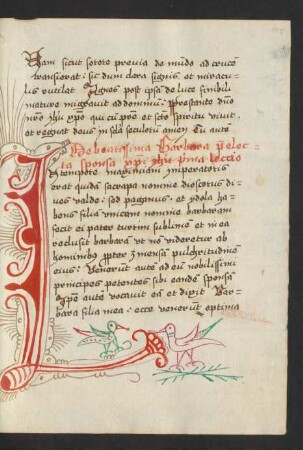 Nam sicut sorore previa de mūdo ad cruce
transierat: sic dum clera signis et miracu
lis rutilat Agnes post ipsā de luce simbili
mature migravit ad dominū: Prestante dño
nro ihu xpo qui cū pre et scto spiritu vivit
et regnat deus in scla seculorū amen Tu autē
De beatissima Barbara p̄elec-
ta sponsa xpi ihu p̄ma leccio
In tempore maximiani imperatoris
erat quidā satrapa nomine dioscorus di
ves valde: sed paganus: et ydola ha
bens filiā unicam nomine barbaram
fecit ei pater turrim sublimē et in ea
reclusit barbarā ut nō videretur ab
hominibus ppter imensā pulchritudinē
eius: Venerunt autē ad eū nobilissimi
principes petentes sibi eandē sponsā
Ipse autē vocavit eā et dixit Bar-
bara filia mea: ecce venerūt optima